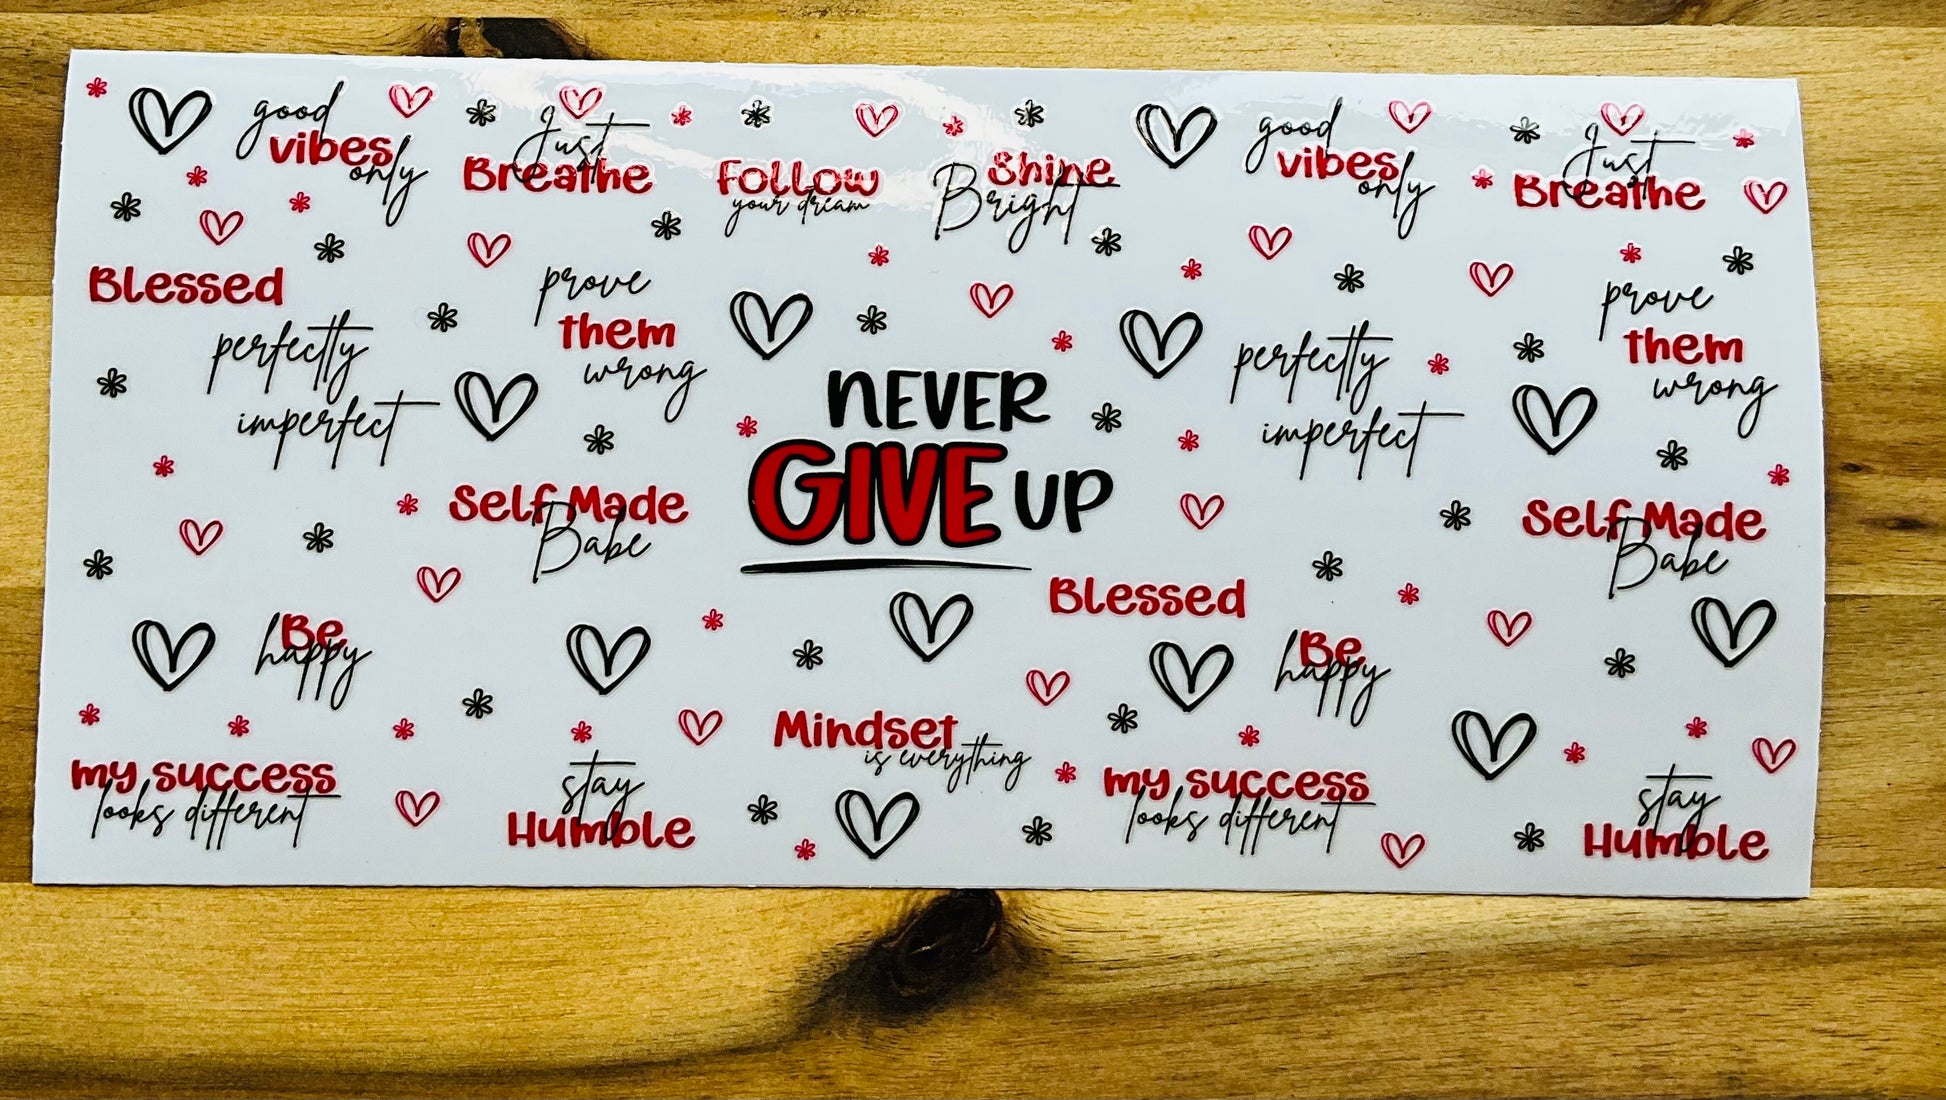 good
vibes
only
Just
Breathe
Follow
your dream
Shine
Bright
good
vibes
only
Just
Breathe
Blessed
perfectly
imperfect
prove
them
wrong
NEVER
GIVE UP
perfectly
imperfect
prove
them
wrong
Self Made
Babe
Self Made
Babe
Blessed
Be
happy
Be
happy
Mindset
is everything
my success
looks different
stay
Humble
my success
looks different
stay
Humble